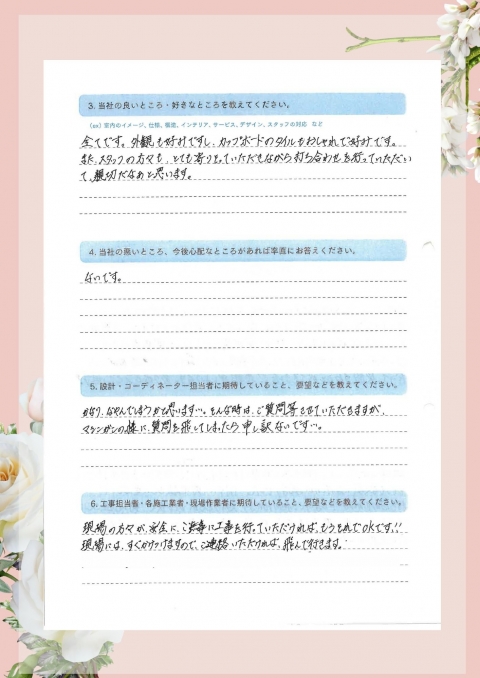 3. 当社の良いところ・好きなところを教えてください。
(ex) 室内のイメージ、仕様、構造、インテリア、サービス、デザイン、スタッフの対応 など
全てです。外観も好みですし、カップボードのタイルもおしゃれで好みです。
また、スタッフの方々も、とても寄りそっていただきながら打ち合わせを行っていただい
て、親切だなあと思います。
4. 当社の悪いところ、今後心配なところがあれば率直にお答えください。
ないです。
5. 設計・コーディネーター担当者に期待していること、要望などを教えてください。
かなり、なやんでしまうかと思います…。そんな時は、ご質問等させていただきますが、
マシンガンの様に、質問を飛してしまったら申し訳ないです…。
6. 工事担当者・各施工業者・現場作業者に期待していること、要望などを教えてください。
現場の方々が、安全に、ご無事に工事を行っていただければ、もうそれでOKです!!
現場には、すぐかけつけますので、ご連絡いただければ、飛んで行きます。